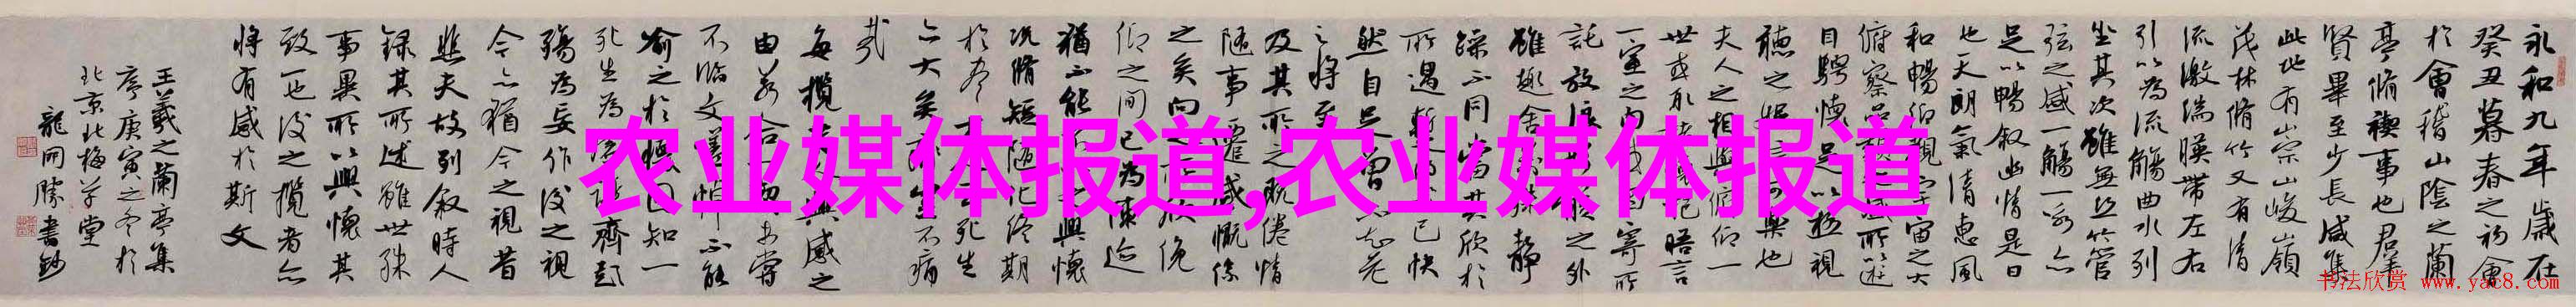 永和九年歲在
癸丑暮春之初會
於會稽山陰之蘭
亭脩禊事也群
賢畢至少長咸集
此地有崇山峻嶺
茂林脩竹又有清
流激湍暎帶左右
引以為流觴曲水列
坐其次雖無絲竹管
弦之盛一觴一詠亦
足以暢敘幽情是日
也天朗氣清惠風
和暢仰觀宇宙之大
俯察品盛所以遊
目騁懷足以極視
聽之娛樂也
夫人之相與俯仰一
世或取晤言
一室之內寄所
託放浪之外
雖趣舍靜
躁不同當其欣於
所遇暫己快
然自足曾不知老
之將至
及其所之既倦情
隨事遷感慨係
之矣向之欣俛
仰之間已為陳迹
猶不能之興懷
況脩短隨化終期
於盡死生
亦大矣豈不痛
哉
每攬昔人興感之
由若合一契未嘗
不臨文嗟悼不能
喻之於懷固知一
死生為虛誕齊彭
殤為妄作後之視
今亦猶今之視昔
悲夫故列敘時人
錄其所述雖世殊
事異所以興懷其
致一也後之攬者亦
將有感於斯文
王羲之蘭亭集
序庚寅之冬於
北京北梅草堂
龍開勝書鈔
农业媒体报道,农业媒体报道
书法欣赏 www.yac8.com